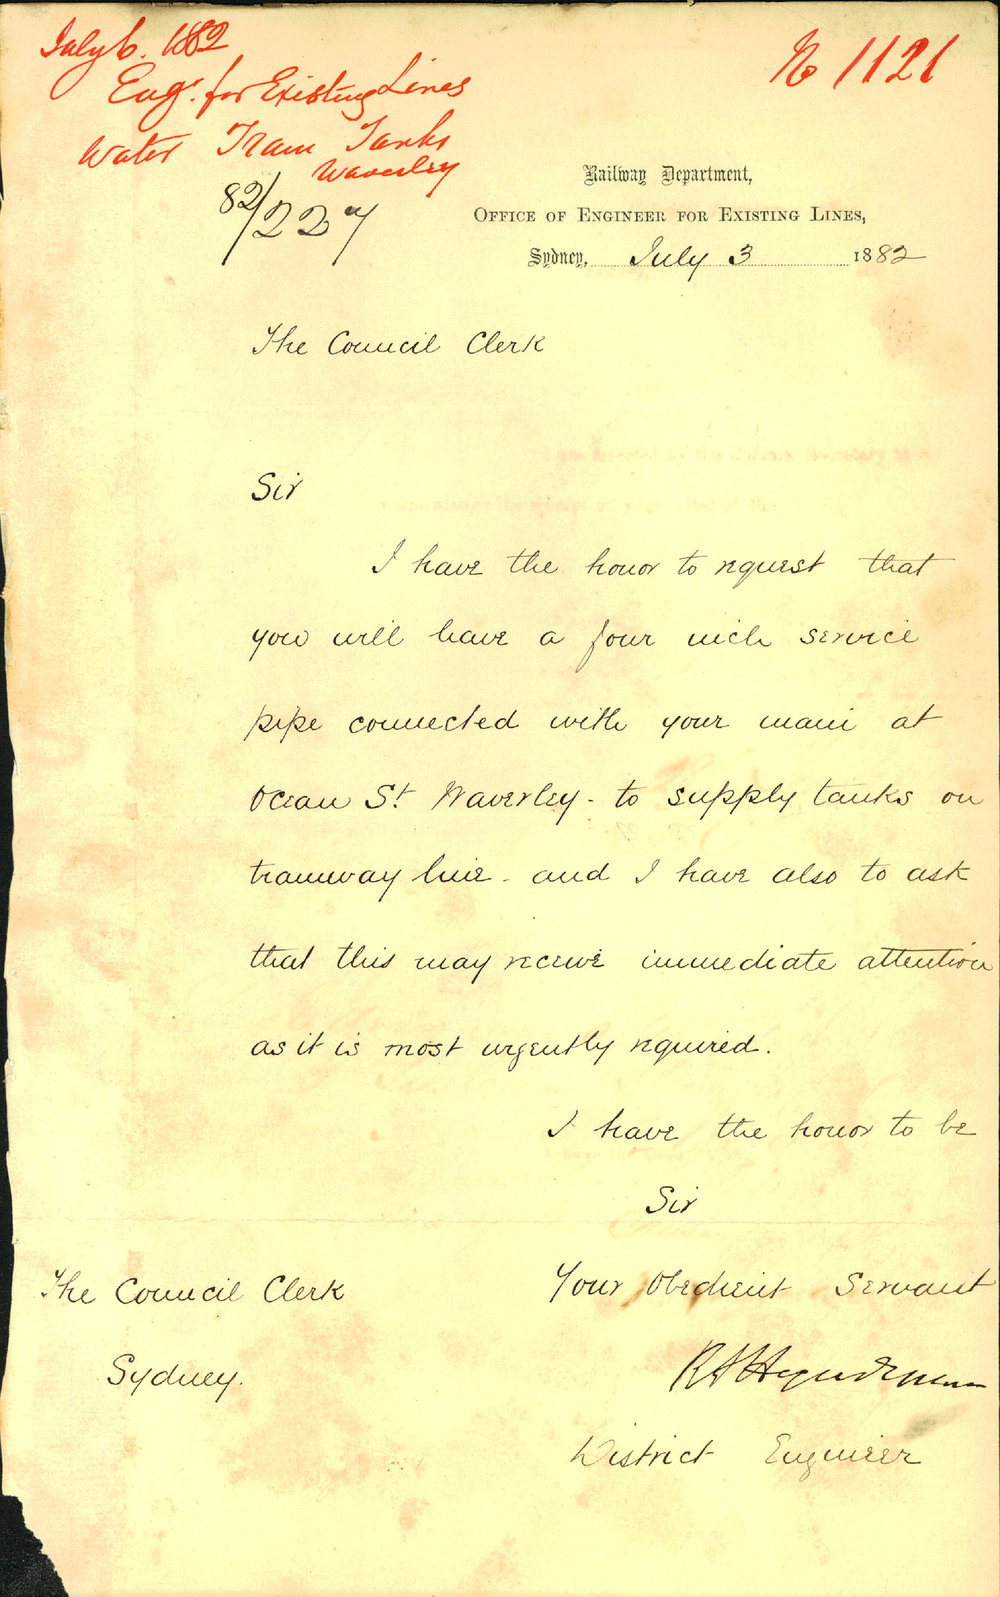 July 6. 1882
Engr. for Existing Lines
Water Tram Tanks
Waverley
No 1121
82/227
Railway Department,
OFFICE OF ENGINEER FOR EXISTING LINES,
Sydney, July 3 1882
The Council Clerk
Sir
I have the honor to request that
you will have a four inch service
pipe connected with your main at
Ocean St Waverley - to supply tanks on
tramway line - and I have also to ask
that this may receive immediate attention
as it is most urgently required.
I have the honor to be
Sir
Your Obedient Servant
District Engineer
The Council Clerk
Sydney.